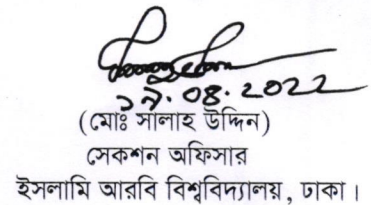 ১৭.০৪.২০২২
(মোঃ সালাহ উদ্দিন)
সেকশন অফিসার
ইসলামি আরবি বিশ্ববিদ্যালয়, ঢাকা।